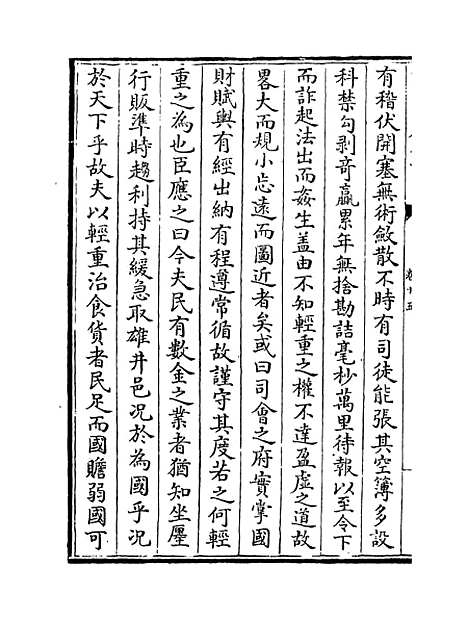 有稽伏開塞無術斂散不時有司徒能張其空簿多設
科禁勾剥竒贏累年無捨勘詰毫杪萬里待報以至令下
而詐起法出而姦生盖由不知輕重之權不達盈虚之道故
畧大而規小忘遠而圖近者矣或曰司會之府實掌國
財賦輿有經出納有程遵常循故謹守其度若之何輕
重之為也臣應之曰今夫民有數金之業者猶知坐㕓
行販準時趨利持其緩急取雄井邑况於為國乎况
於天下乎故夫以輕重治食貨者民足而國贍弱國可
卷十五